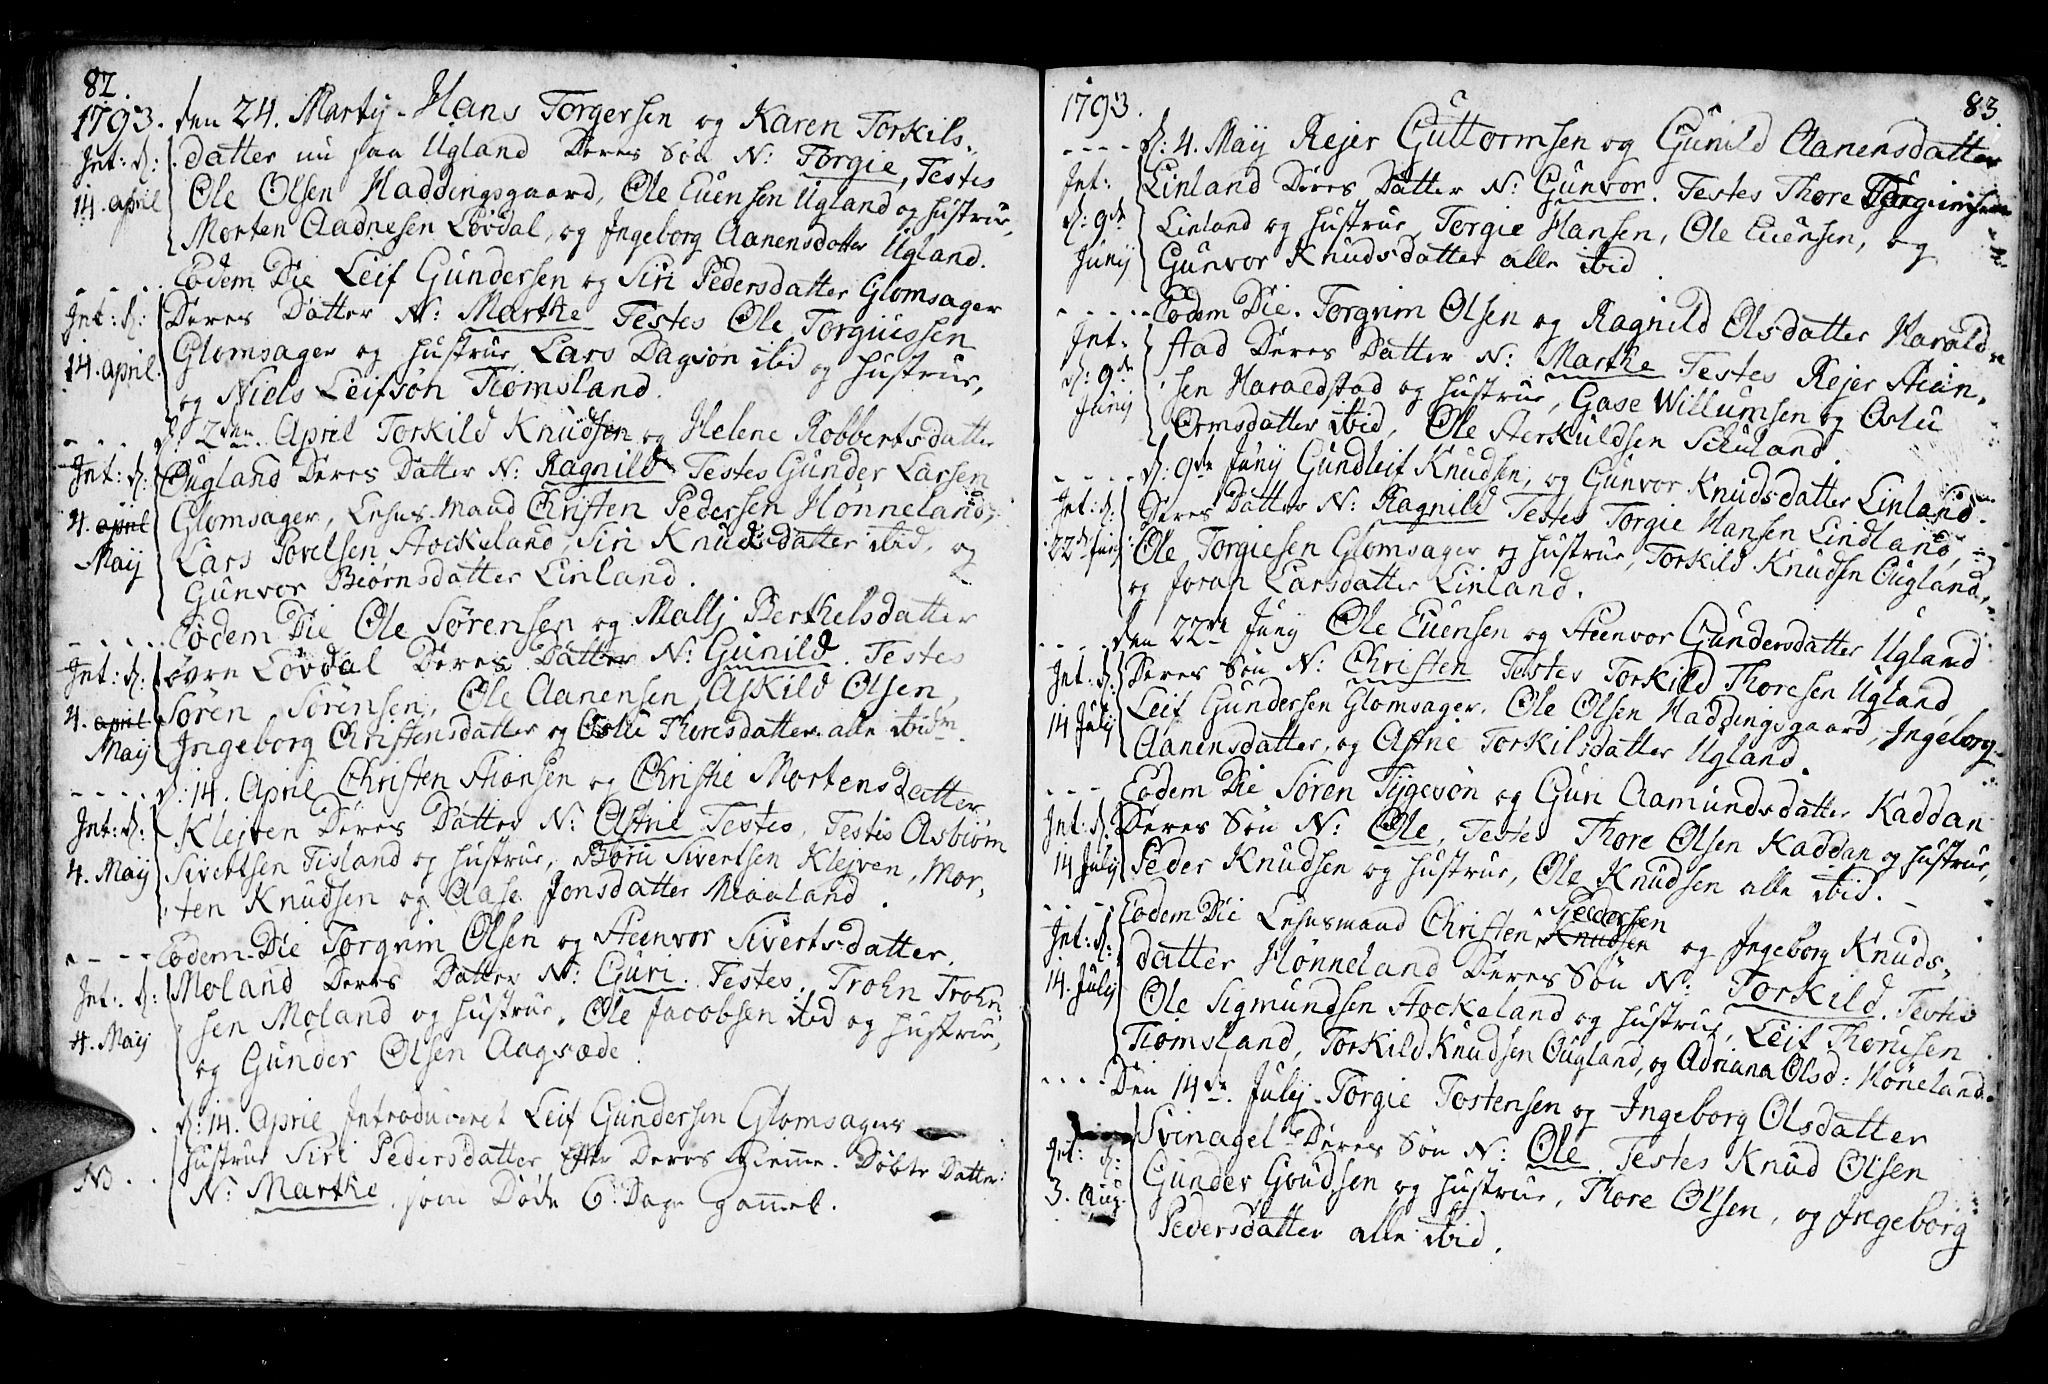 82.
1793. den 24. Martij. Hans Torgersen og Karen Torkils-
Int: d: datter nu paa Ugland Deres Søn N: Torgie, Testes
14. april Ole Olsen Haddingsgaard, Ole Evensen Ugland og hustrue,
Morten Aadnesen Løvdal, og Ingeborg Aanensdatter Ugland.
- - - - Eodem Die Leif Gundersen og Siri Pedersdatter Glomsager
Int: d: Deres Datter N: Marthe Testes Ole Torgiussen
14. april. Glomsager og hustrue Lars Dagsøn ibid og hustrue,
og Niels Leifsøn Tiomsland.
- - - d: 2den April Torkild Knudsen og Helene Robbertsdatter
Int: d: Øugland Deres Datter N: Ragnild Testes Gunder Larsen
4. april Glomsager, Lehnsmand Christen Pedersen Hønneland,
Maij Lars Povelsen Stockeland, Siri Knudsdatter ibid, og
Gunvor Biørnsdatter Linland.
- - - - Eodem Die Ole Sørensen og Mallj Berthelsdatter
Int: d: øvre Løvdal Deres Datter N: Gunild. Testes
4. april Søren Sørensen, Ole Aanensen, Askild Olsen,
Maij Ingeborg Christensdatter og Oslu Thoresdatter alle ibidm.
- - - - d: 14. April Christen Stionsen og Christie Mortensdatter
Int: d: Klejven Deres Datter N: Astrie Testes, Testes Asbiørn
4. Maij Sivertsen Fisland og hustrue, Boru Sivertsen Klejven, Mor-
ten Knudsen og Aase Jonsdatter Meaaland.
- - - - Eodem Die Torgrim Olsen og Steenvor Sivertsdatter,
Int: d: Moland Deres Datter N: Guri. Testes, Troen Troen
4. Maij sen Moland og hustrue, Ole Jacobsen ibid og hustrue,
og Gunder Olsen Aagsæde.
d: 14. April Introduceret Leif Gundersen Glomsagers
hustrue Siri Pedersdatter efter Deres hiemme-Døbte Datter
NB. N: Marthe, som Døde 6 Dage gammel.
1793. 83.
- - - - d: 4. Maij Rejer Guttormsen og Gunild Aanensdatter
Int: Linland Deres Datter N: Gunvor. Testes Thore Torgrimsen
d: 9de Linland og hustrue, Torgie Hansen, Ole Evensen, og
Junij Gunvor Knudsdatter alle ibid.
- - - - - Eodem Die. Torgrim Olsen og Ragnild Olsdatter Harald-
Int: stad Deres Datter N: Marthe Testes Rejer Stian-
d: 9de sen Haraldstad og hustrue, Gase Willumsen og Oslu
Junij Ormsdatter ibid, Ole Aerkuldsen Schuland.
- - - - - d: 9de Junij Gundleif Knudsen, og Gunvor Knudsdatter Linland.
Int: d: Deres Datter N: Ragnild Testes Torgie Hansen Lindland,
22de Junij Ole Torgiesen Glomsager og hustrue, Torkild Knudsen Øugland,
og Joran Larsdatter Linland.
- - - - den 22de Junij Ole Evensen og Steenvor Gundersdatter Ugland
Int: d: Deres Søn N: Christen Testes Torkild Thoresen Ugland,
14 Julij Leif Gundersen Glomsager, Ole Olsen Haddingsgaard, Ingeborg
Aanensdatter, og Astrie Torkilsdatter Ugland.
- - - Eodem Die Søren Tygesøn og Gun Aamundsdatter Kaddan
Int: d: Deres Søn N: Ole. Testes Thore Olsen Kaddan og hustrue,
14 Julij Peder Knudsen og hustrue, Ole Knudsen alle ibid.
Pedersen
- - - - Eodem Die Lehnsmand Christen Knudsen og Ingeborg Knuds-
Int: d: datter Hønneland Deres Søn N: Torkild. Testes
14. Julij Ole Sigmundsen Stockeland og hustrue, Leif Thorusen
Tiomsland, Torkild Knudsen Øugland, og Adriana Olsd: Høneland.
- - - - Den 14de Julij. Torgie Tostensen og Ingeborg Olsdatter
Int: d: Svinagel Deres Søn N: Ole. Testes Knud Olsen
3. Aug. Gunder Goudsen og hustrue, Thore Olsen, og Ingeborg
Pedersdatter alle ibid.